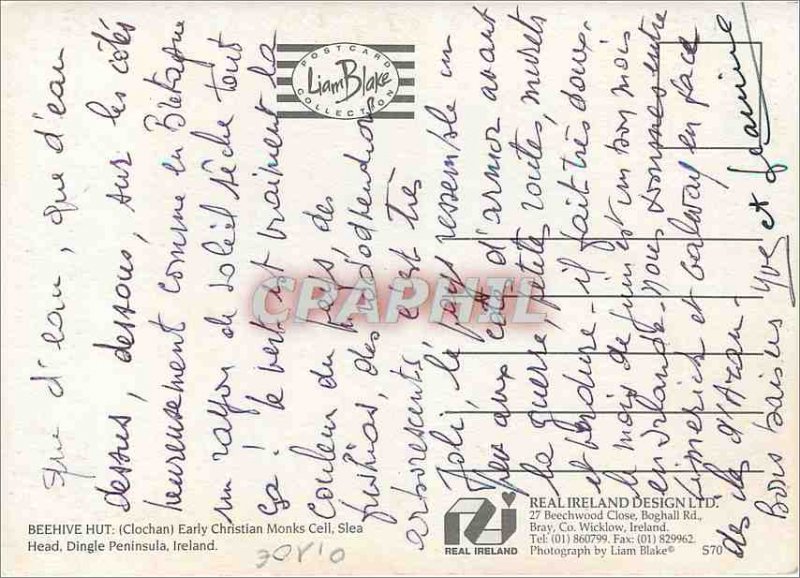 que d'eau, que d'eau
dessus, dessous, sur les côtés
heureusement comme en Bretagne
un rayon de soleil sèche tout
ça! le vert est vraiment la
couleur du pays des
fushias, des rhododendrons
arborescents, c'est très
Joli, le pays ressemble un
peu aux côtes d'armor avant
la guerre, petites routes, murets
et verdure - il fait très doux.
le mois de juin est un bon mois
en Irlande - nous sommes entre
Limerick et Galway en face
des îles d'Aran -
Bons baisers Yves et Jeannine
POSTCARD
Liam Blake
COLLECTION
CPARAMA
BEEHIVE HUT: (Clochan) Early Christian Monks Cell, Slea
Head, Dingle Peninsula, Ireland.
REAL IRELAND
REAL IRELAND DESIGN LTD.
27 Beechwood Close, Boghall Rd.,
Bray, Co. Wicklow, Ireland.
Tel: (01) 860799. Fax: (01) 829962.
Photograph by Liam Blake© S70